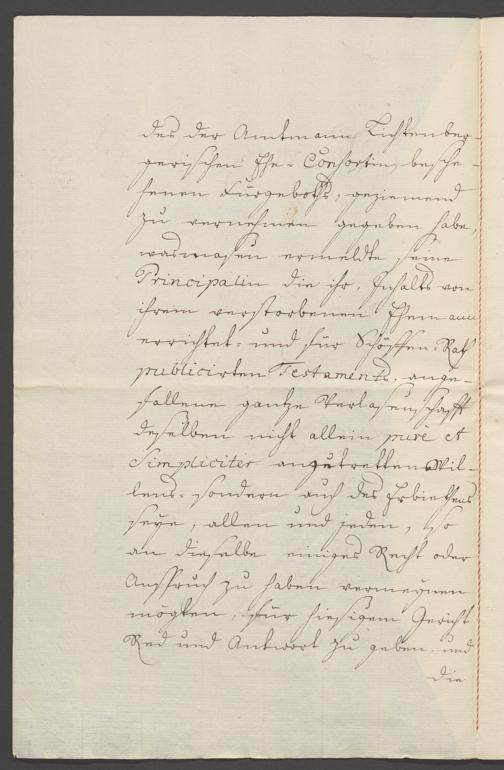 des der Amtmann Lichtenber-
gerischen Ehe-Consortin besche-
henen Fürgeboths, geziemend
zu vernehmen gegeben habe,
wasmasen ermeldte seine
Principalin die ihr, Inhalts von
ihrem verstorbenen Ehemann
errichtet- und für Schöffen-Rath
publicirten Testaments, ange-
fallene gantze Verlasenschafft
deselben nicht allein pure et
Simpliciter anzutretten Wil-
lens, sondern auch des Erbiethens
seye, allen und jeden, so
an dieselbe einiges Recht oder
Anspruch zu haben vermeynen
mögten, für hiesigem Gericht
Red und Antwort zu geben und
die